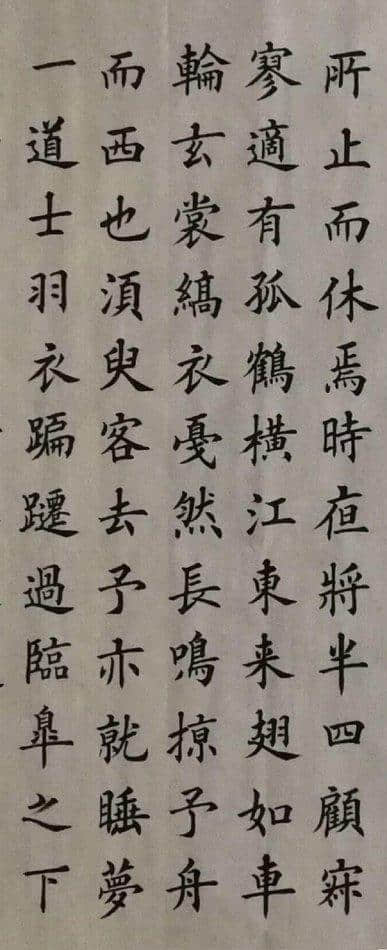 所止而休焉時夜將半四顧寂
寥適有孤鶴橫江東来翅如車
輪玄裳縞衣戛然長鳴掠予舟
而西也須臾客去予亦就睡夢
一道士羽衣蹁躚過臨皋之下